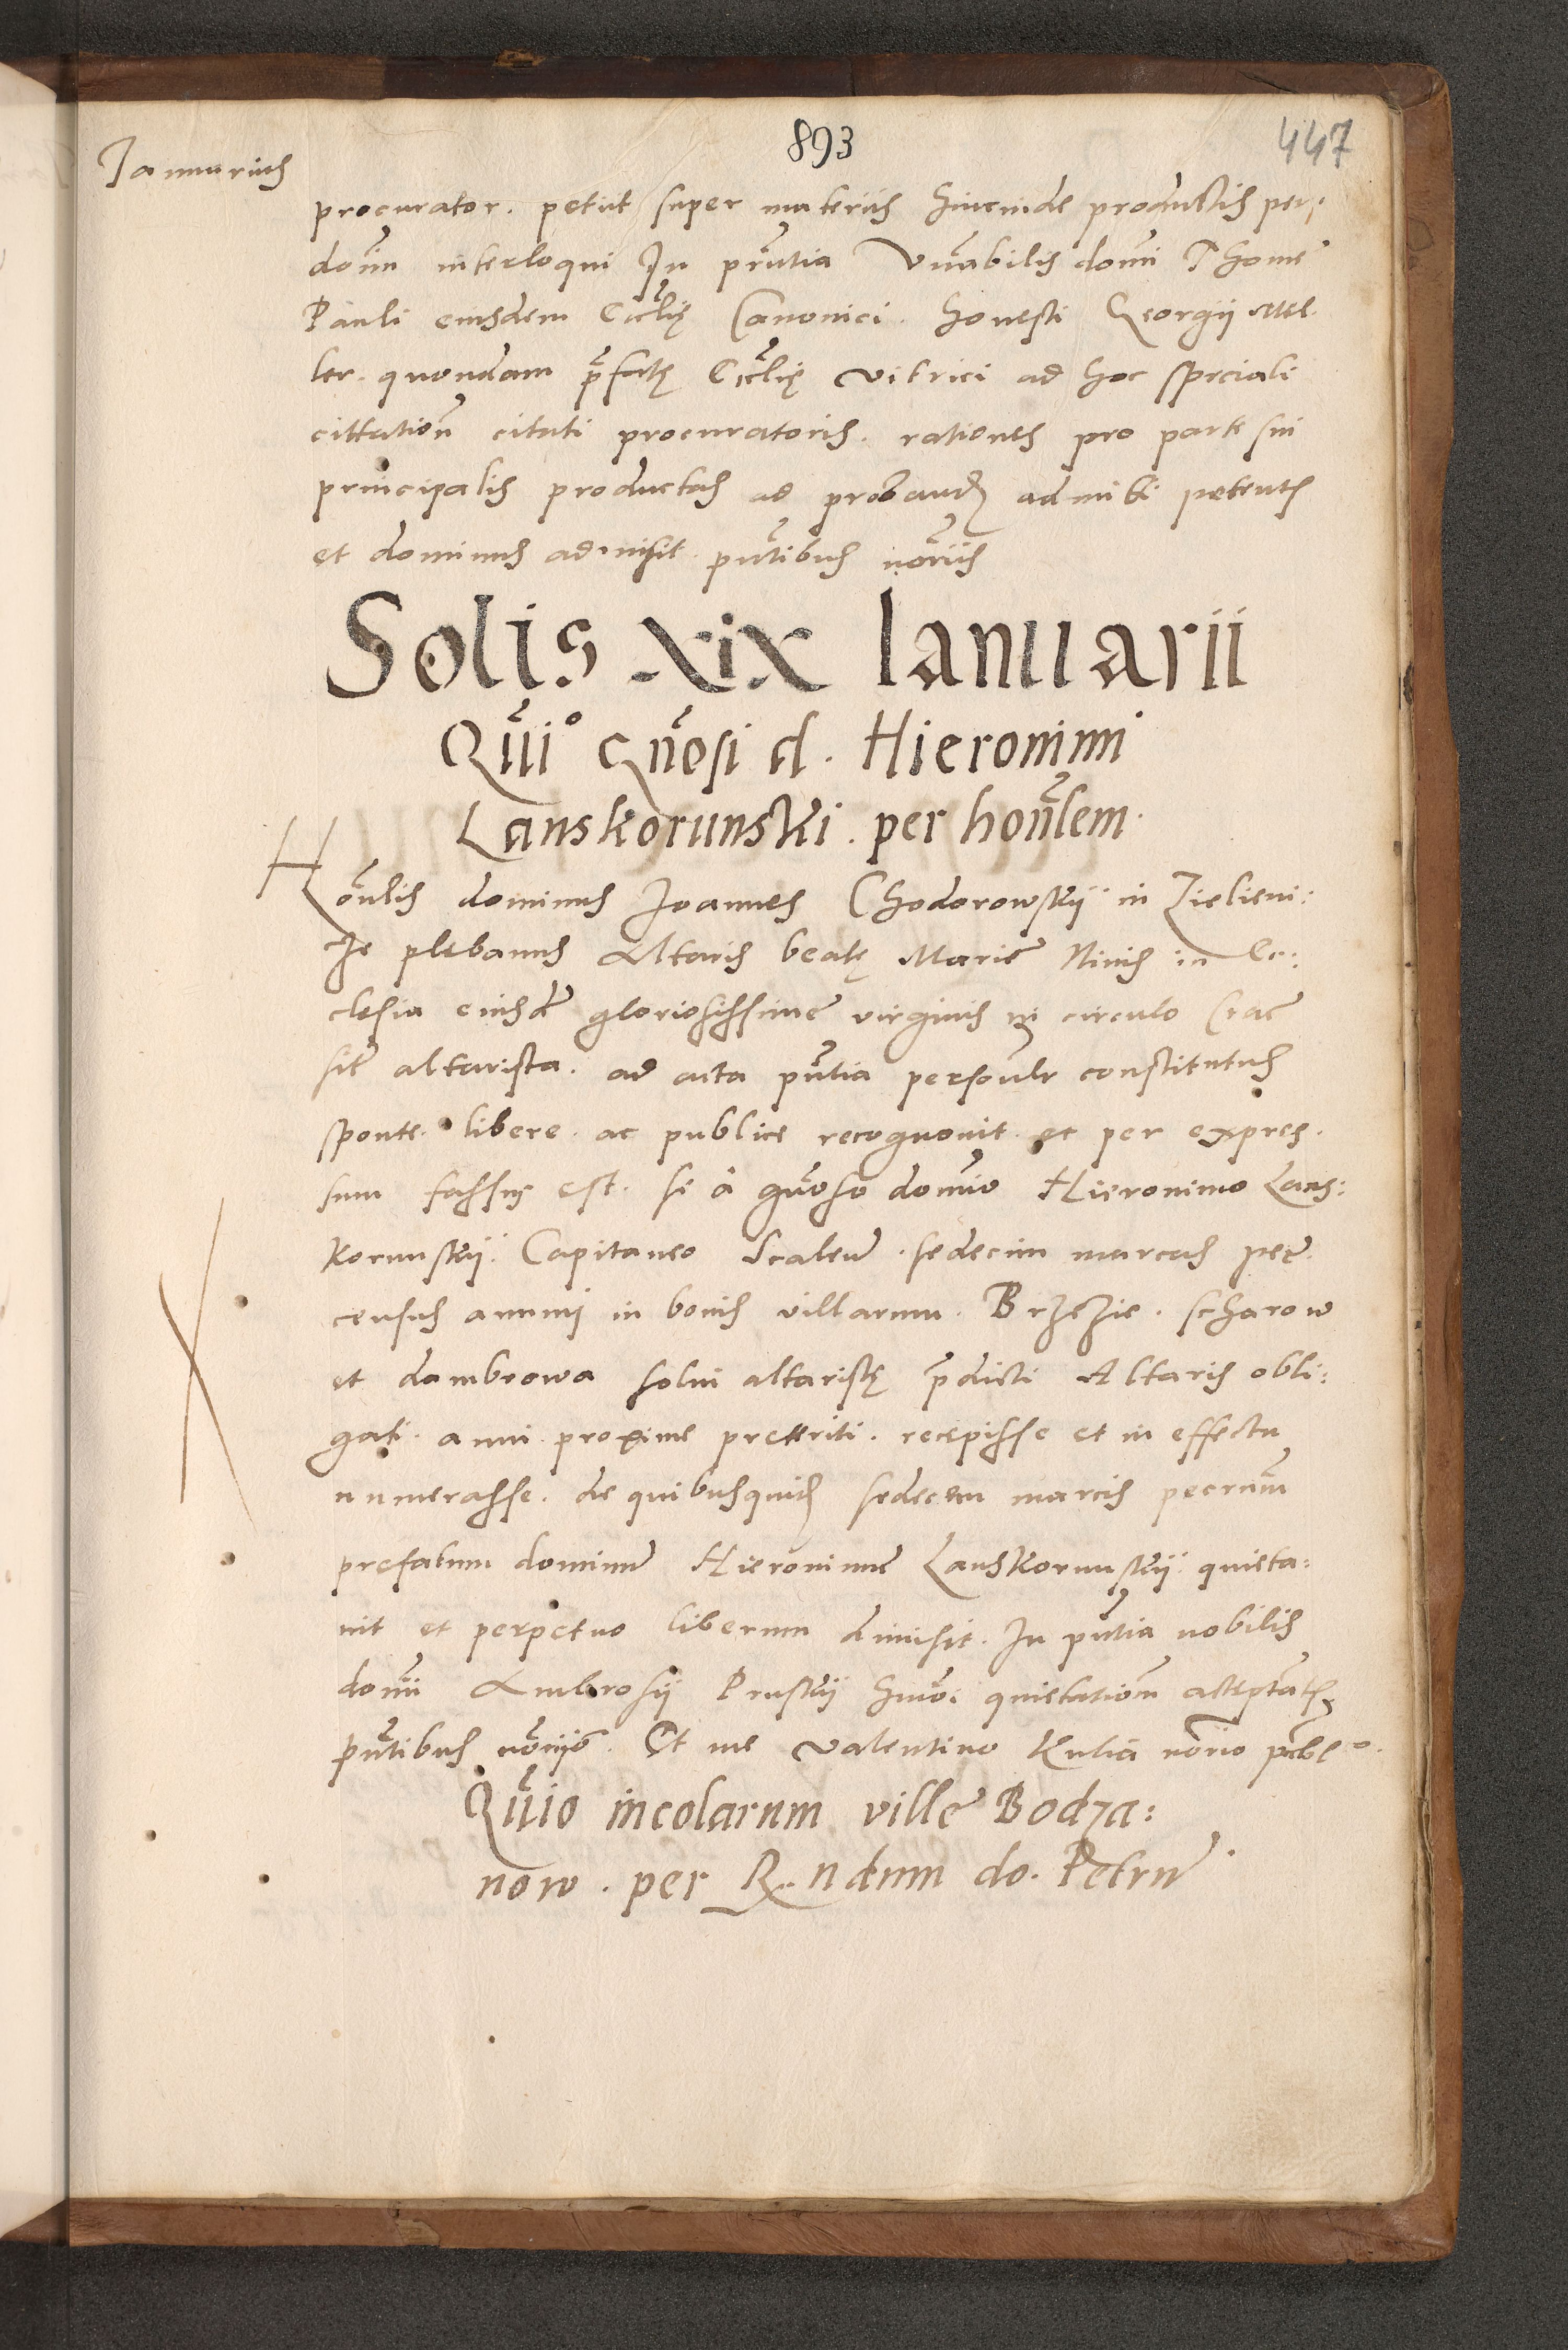 893
447
Januarius
procurator. petiit super materiis hincinde productis per
domn interloqui In prntia Vnabilis domi Thome
Pauli eiusdem Ecclię Canonici. honesti Georgii Mel-
ler. quondam prefatę Ecclię vitrici ad hoc speciali
cittation citati procuratoris. rationes pro parte sui
principalis productas ad proband admitti petentis
et dominus admisit pntibus notriis
Solis xix Ianuarii
Quio Gnosi d. Hieronimi
Lanskorunski. per honlem.
Honlis dominus Joannes Chodorowskÿ in Zieleni:
ze plebanus Altaris beatę Marie Nivis in Ec:
clesia eiusde gloriosissime virginis in circulo Crac
site altarista. ad acta pntia personlr constitutus
sponte. libere. ac publice recognovit et per expres.
sum fassus est. se a gnoso domino Hieronimo Lans:
korunskÿ. Capitaneo Scalen. sedecim marcas pec.
census annuj in bonis villarum. Brzezie. scharow
et dambrowa solui altaristę predicti Altaris obli:
gati. anni proxime preteriti. recepisse et in effectu
numerasse. de quibusquid sedecem marcis pecrum
prefatum dominu Hieronimu Lanskorunskÿ. quieta:
uit et perpetuo liberum dimisit. In pntia nobilis
domi Ambrosÿ Pruskÿ hmoi quietationem acceptatis
pntibus notriis. Et me Valentino Kulia notrio publo.
Quio incolarum ville Bodza:
now. per R.ndum do. Petru.